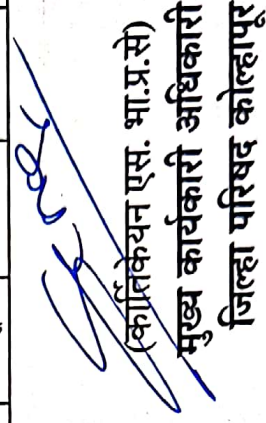 (कार्तिकेयन एस. भा.प्र.से)
मुख्य कार्यकारी अधिकारी
जिल्हा परिषद कोल्हापूर